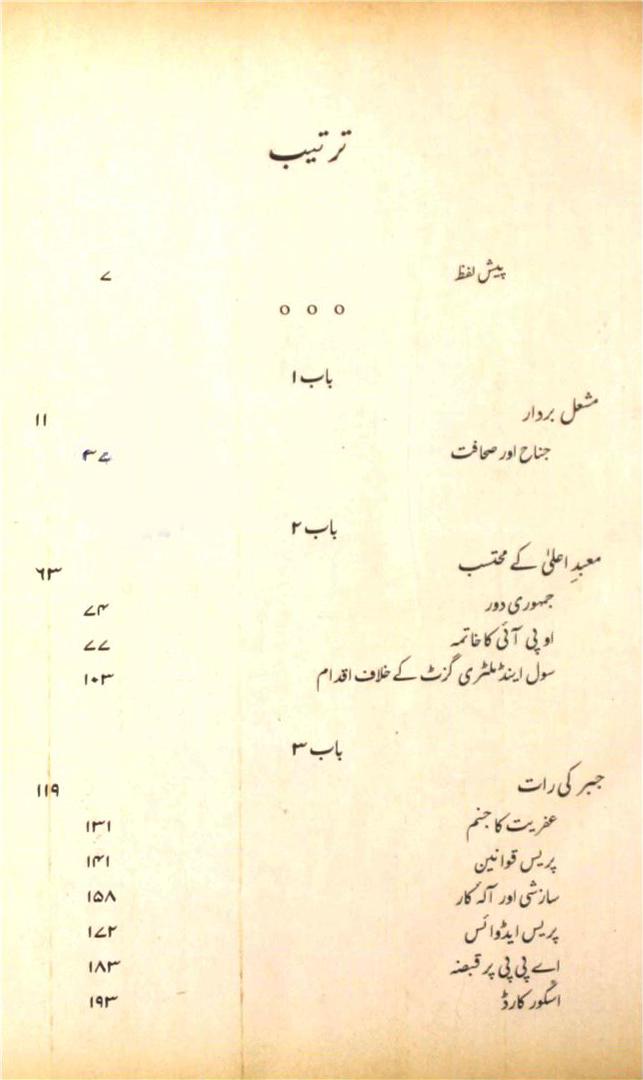 ترتیب
پیش لفظ ۷
o o o
باب ۱
مشعل بردار ۱۱
جناح اور صحافت ۳۷
باب ۲
معبدِ اعلیٰ کے محتسب ۶۳
جمہوری دور ۷۴
او پی آئی کا خاتمہ ۷۷
سول اینڈ ملٹری گزٹ کے خلاف اقدام ۱۰۳
باب ۳
جبر کی رات ۱۱۹
عفریت کا جنم ۱۳۱
پریس قوانین ۱۴۱
سازشی اور آلہ کار ۱۵۸
پریس ایڈوائس ۱۷۲
اے پی پی پر قبضہ ۱۸۳
اسکور کارڈ ۱۹۳